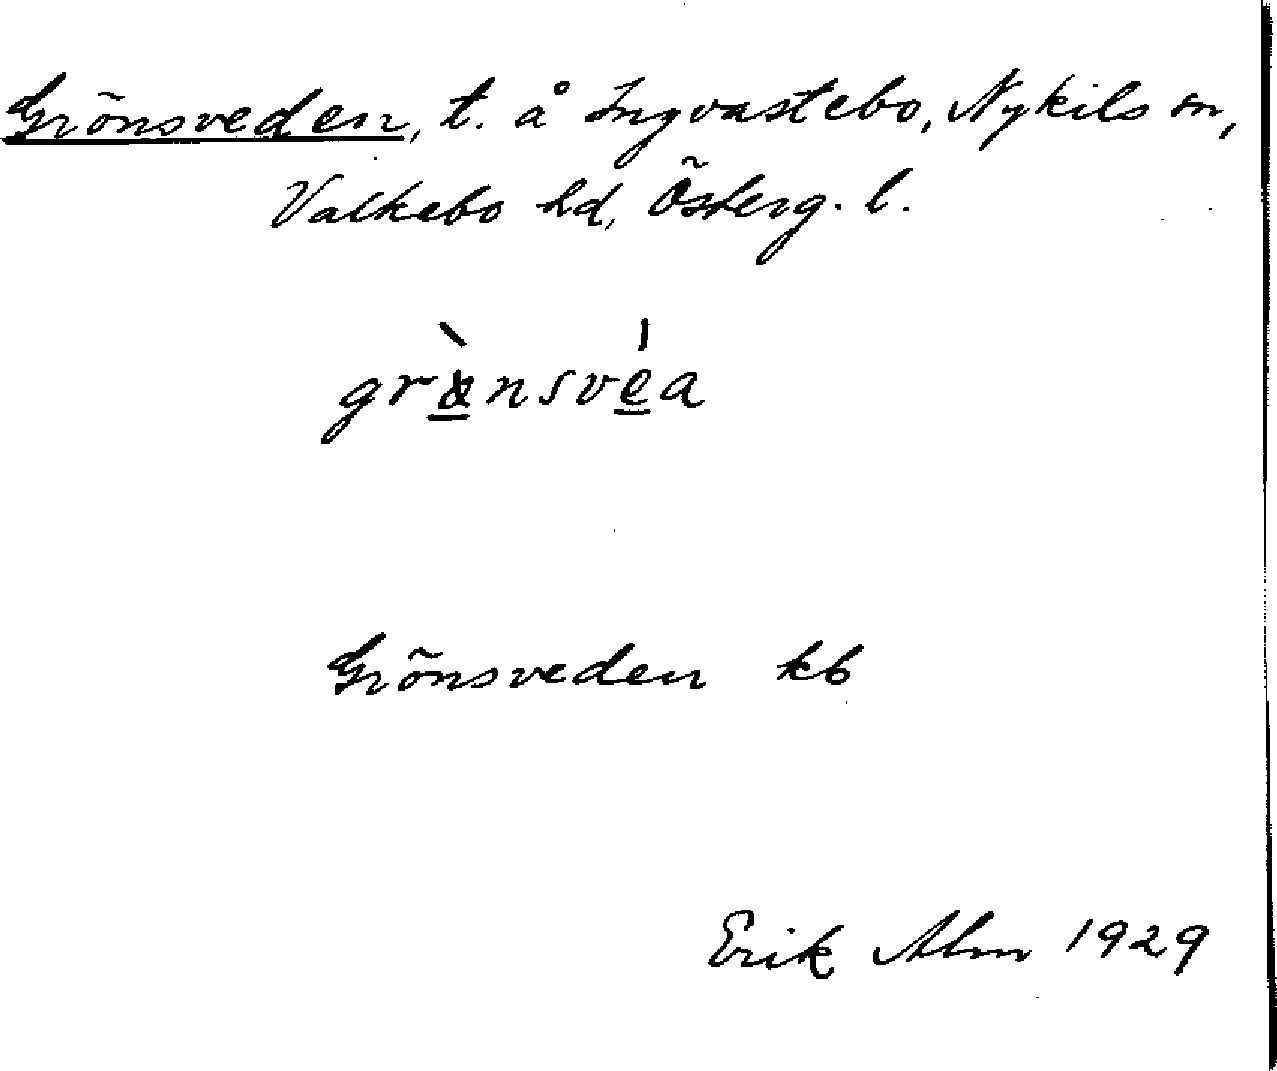 Grönsveden, t. å Ingvastebo, Nykils sn,
Valkebo hd, Österg. l.
grö̀nsvéa
Grönsveden kb
Erik Alm 1929